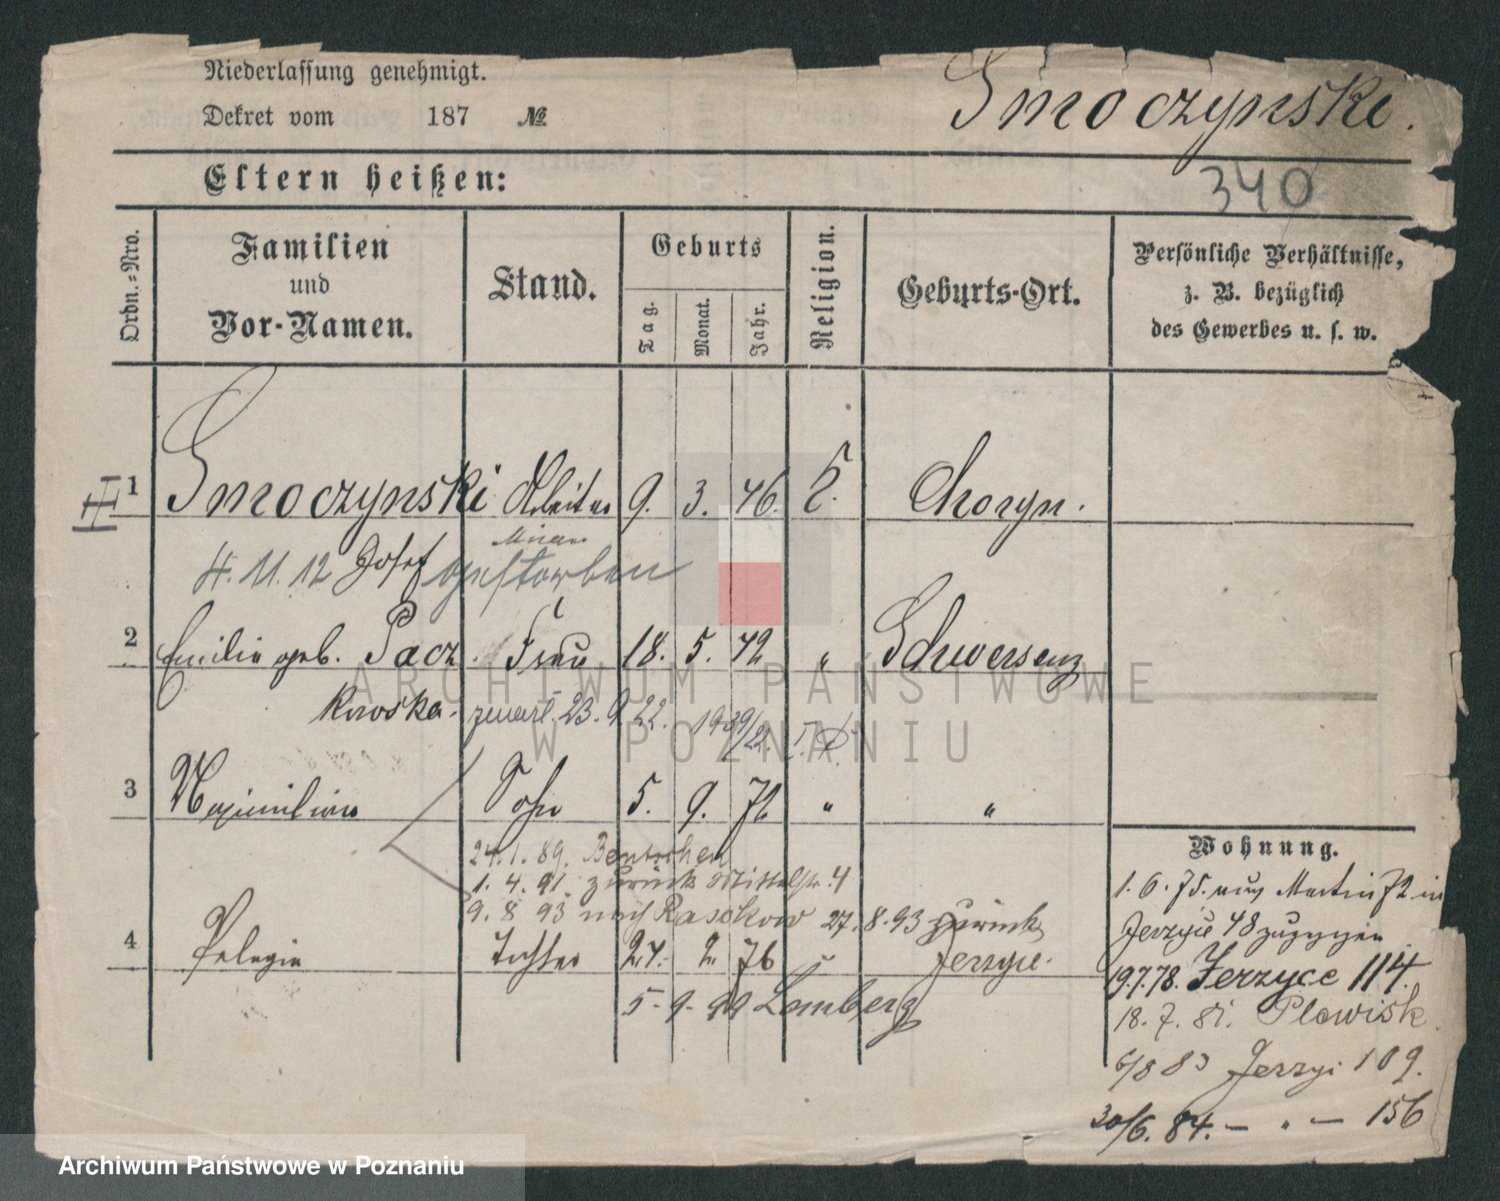 Niederlassung genehmigt.
Dekret vom 187 №
Smoczynski.
Eltern heißen:
340
Ordn.-Nro.
Familien
und
Vor-Namen.
Stand.
Geburts
Tag.
Monat.
Jahr.
Religion.
Geburts-Ort.
Persönliche Verhältnisse,
z. B. bezüglich
des Gewerbes u. s. w.
III
1 Smoczynski Arbeiter 9. 3. 46. Choryn.
11. 12 Josef gestorben
2 Emilie geb. Pacz Frau 18. 5. 42 " Schwersenz
kowska. zmarł. 23. 9 22.
3 Maximilian Sohn 5. 9. 72 " "
24.1.89. Bentschen
1. 4. 91. zurück Mittelstr. 4
9. 8 93 nach Raschkow 27. 8. 93 zurück
Jerzyce.
4 Pelagia Tochter 24. 2. 76 "
5. 9. 99 Lemberg
Wohnung.
1. 6. 75. aus Martin 72 in
Jerzyce 48 zugezogen
19.7.78. Jerzyce 114.
18. 7. 81. Plewisk
6/8 83 Jerzyc 109.
30/6. 84. — " — 156
ARCHIWUM PAŃSTWOWE
W POZNANIU
Archiwum Państwowe w Poznaniu